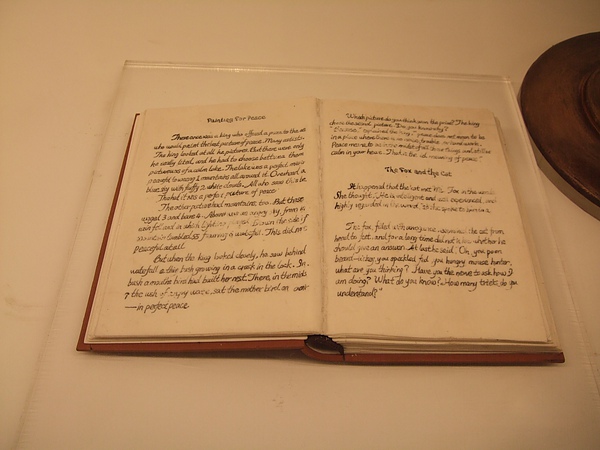 Painting For Peace
There once was a king who offered a prize to the
who would paint the best picture of peace. Many artists
The king looked at all the pictures. But there were only
he really liked, and he had to choose between them
picture was of a calm lake. The lake was a perfect
mountains all around it. Overhead
blue sky with fluffy white clouds. All who saw this
Thought it was a perfect picture of peace
The other picture had mountains too. But these
rugged and bare. Above was an angry sky, from
rain fell and in which lightning played. Down the side of
mountain tumbled a foaming waterfall. This did not
peaceful at all.
But when the king looked closely, he saw behind
waterfall a tiny bush growing in a crack in the rock. In
bush a mother bird had built her nest. There, in the midst
the rush of angry water, sat the mother bird on
— in perfect peace.
Which picture do you think won the prize? The king
chose the second picture. Do you know why?
"Because," explained the king, "peace does not mean to be
in a place where there is no noise, trouble, or hard work.
Peace means to be in the midst of all those things and still be
calm in your heart. That is the real meaning of peace."
The Fox and the Cat
It happened that the cat met Mr. Fox in the
She thought, He is intelligent and well experienced, and
highly regarded in the world.
The fox, filled with arrogance, the cat from
head to feet, and for a long time did not know whether he
should give an answer. At last he said, Oh, you poor
beard-licker, you speckled fool, you hungry mouse hunter,
what are you thinking? Have you the nerve to ask how I
am doing? What do you know? How many tricks do you
understand?"